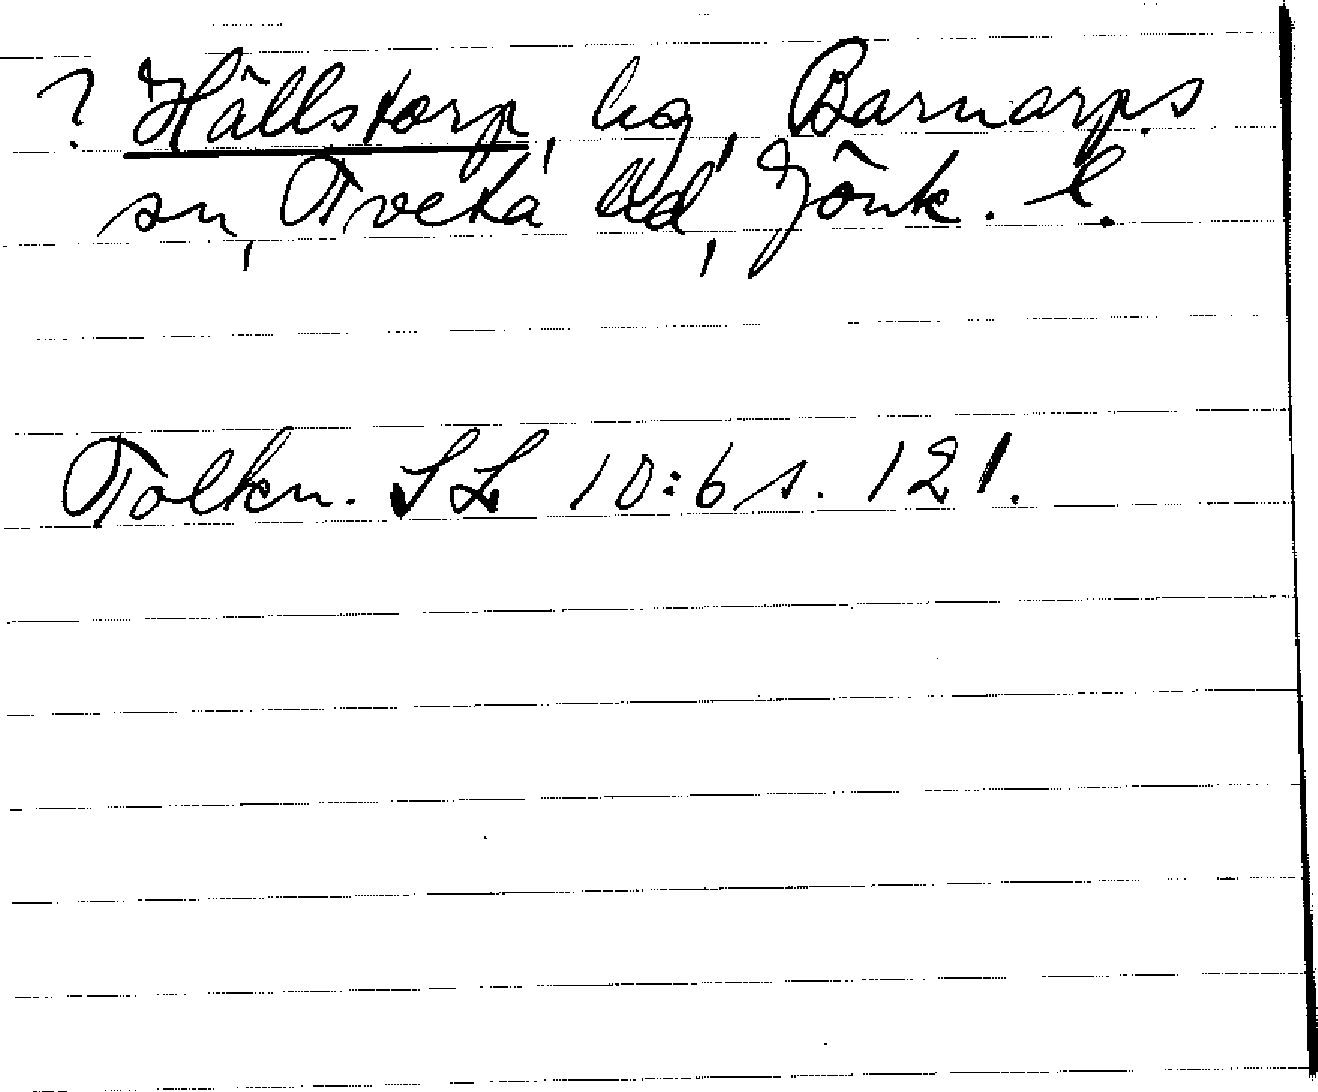 ? Hällstorp, hg, Barnarps
sn, Tveta hd, Jönk. l.
Tolkn. SL 10:6 s. 121.